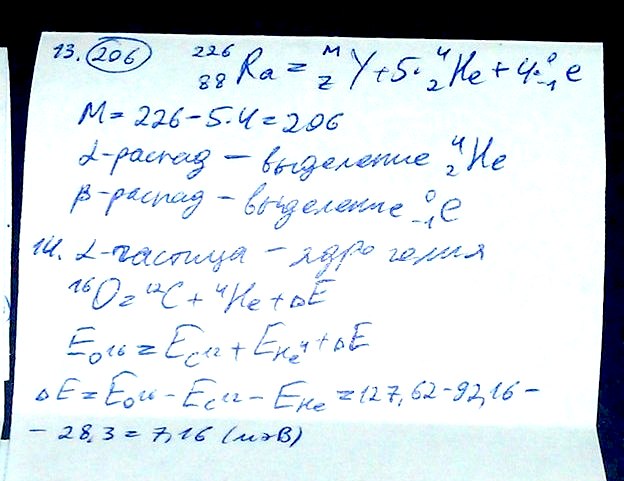 13. 206 ²²⁶₈₈Ra = ᴹ_Z Y + 5·⁴₂He + 4·⁰₋₁e
M = 226 - 5·4 = 206
α-распад – выделение ⁴₂He
β-распад – выделение ⁰₋₁e
14. α-частица – ядро гелия
¹⁶O = ¹²C + ⁴He + ΔE
E_O¹⁶ = E_C¹² + E_He⁴ + ΔE
ΔE = E_O¹⁶ - E_C¹² - E_He = 127,62 - 92,16 -
- 28,3 = 7,16 (МэВ)